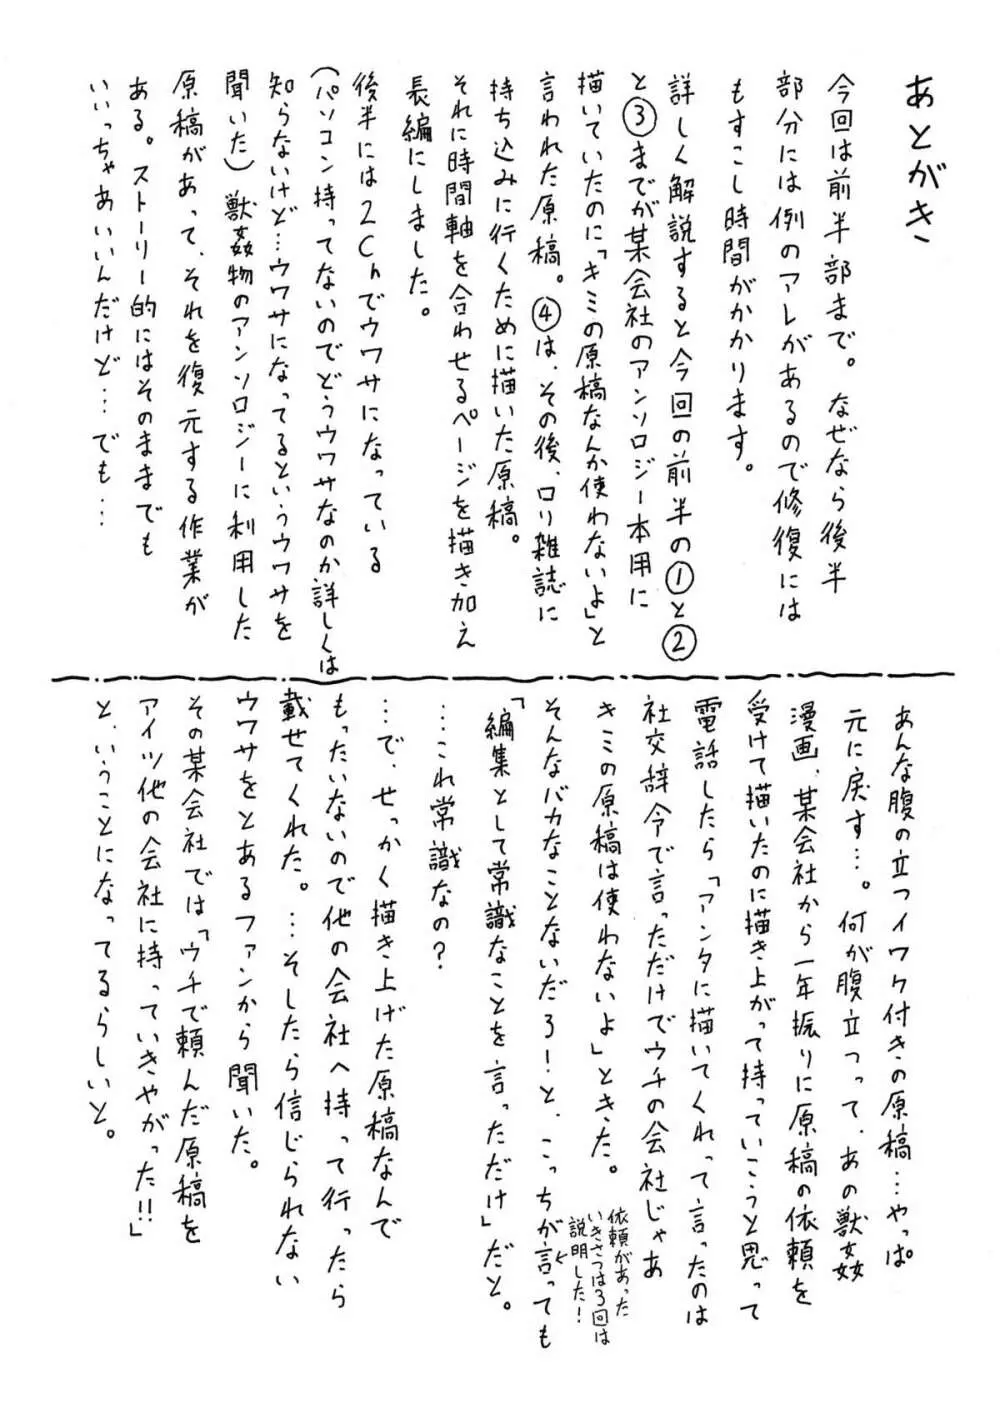 あとがき
今回は前半部まで。なぜなら後半
部分には例のアレがあるので修復には
もすこし時間がかかります。
詳しく解説すると今回の前半の①と②
と③までが某会社のアンソロジー本用に
描いていたのに「キミの原稿なんか使わないよ」と
言われた原稿。④は、その後、ロリ雑誌に
持ち込みに行くために描いた原稿。
それに時間軸を合わせるページを描き加え
長編にしました。
後半には2chでウワサになっている
(パソコン持ってないのでどうウワサなのか詳しくは
知らないけど…ウワサになってるというウワサを
聞いた)獣姦物のアンソロジーに利用した
原稿があって、それを復元する作業が
ある。ストーリー的にはそのままでも
いいっちゃあいいんだけど…でも…
あんな腹の立つイワク付きの原稿…やっぱ
元に戻す…。何が腹立つって、あの獣姦
漫画、某会社から一年振りに原稿の依頼を
受けて描いたのに描き上がって持っていこうと思って
電話したら「アンタに描いてくれって言ったのは
社交辞令で言っただけでウチの会社じゃあ
キミの原稿は使わないよ」ときた。
そんなバカなことないだろー!と、こっちが言っても
依頼があった
いきさつは3回は
説明した!
「編集として常識なことを言っただけ」だと。
…これ常識なの?
…で、せっかく描き上げた原稿なんで
もったいないので他の会社へ持って行ったら
載せてくれた。…そしたら信じられない
ウワサをとあるファンから聞いた。
その某会社では「ウチで頼んだ原稿を
アイツ他の会社に持っていきやがった!!」
と、いうことになってるらしいと。